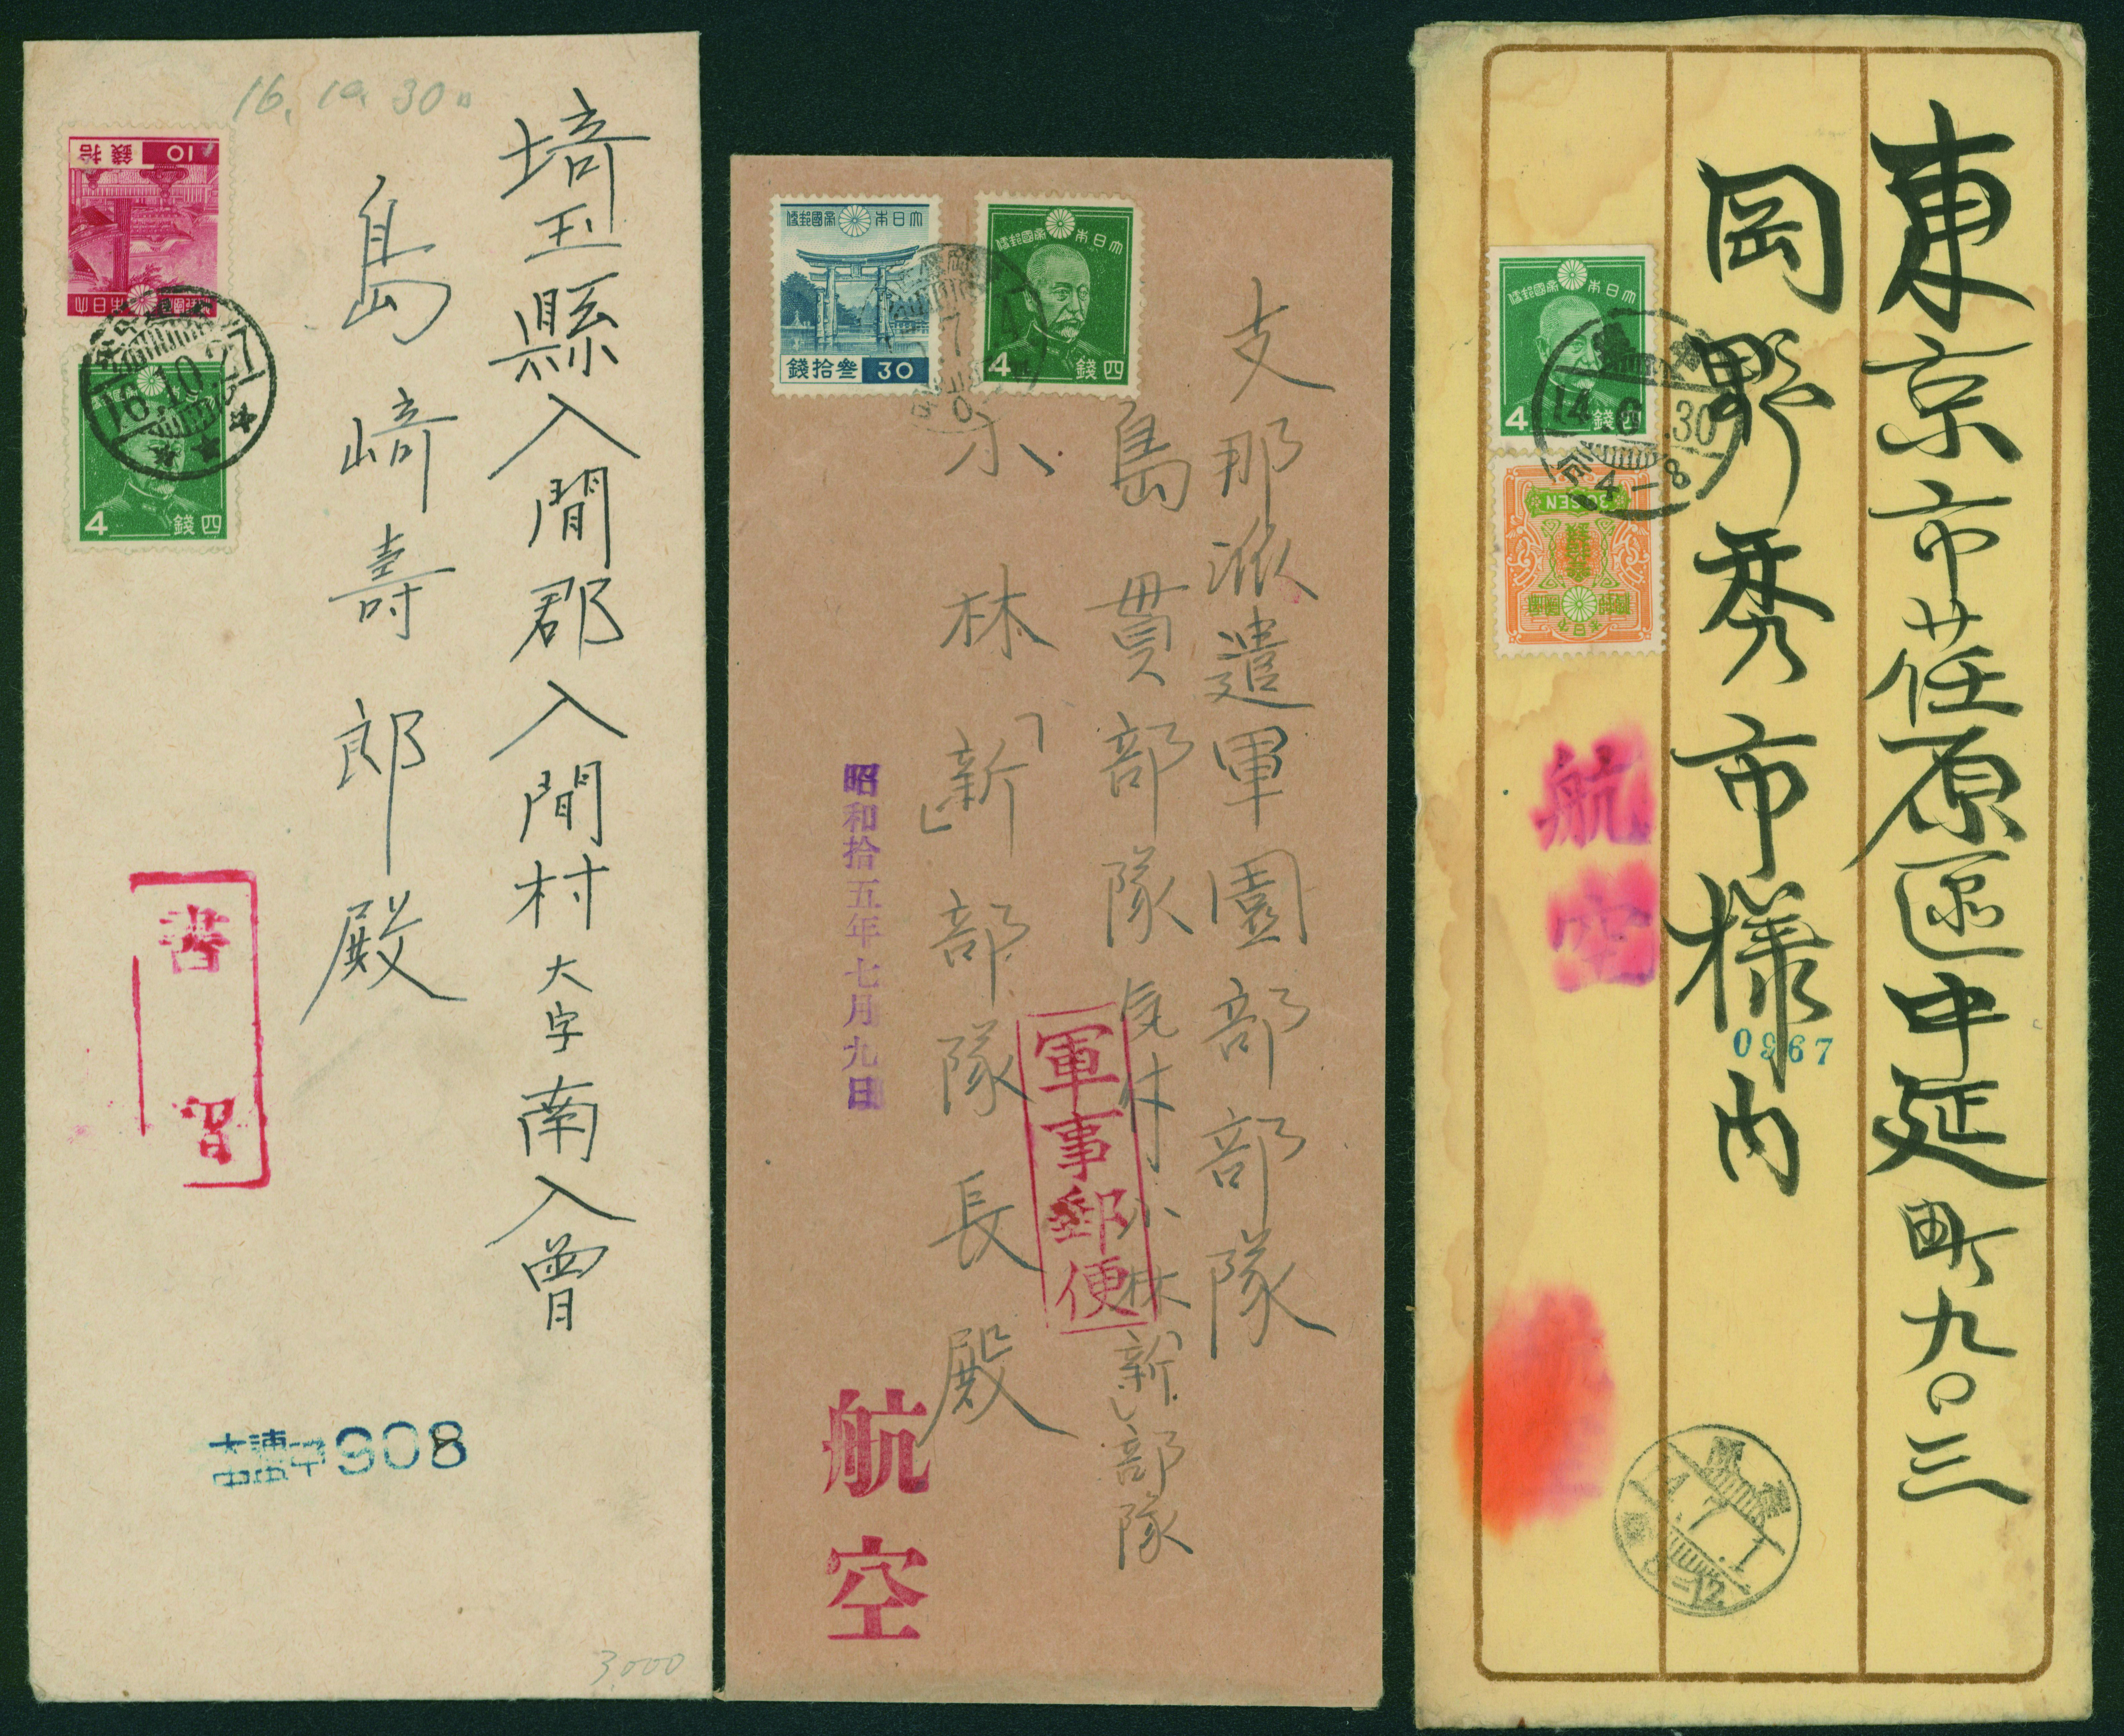 16.10.30
10
錢拾
大日本帝國郵便
16.10.27
4
四錢
埼玉縣入間郡入間村大字南入曽
島崎壽郎殿
書
留
908
3,000
大日本帝國郵便
30
參拾錢
大日本帝國郵便
4
四錢
支那派遣軍園部部隊
島貫部隊気付小林「新」部隊
小林「新」部隊長殿
昭和拾五年七月九日
軍事郵便
航空
大日本帝國郵便
4
四錢
大日本帝國郵便
14.6.30
4-8
東京市荏原區中延町九〇三
岡野秀市様内
航空
0967